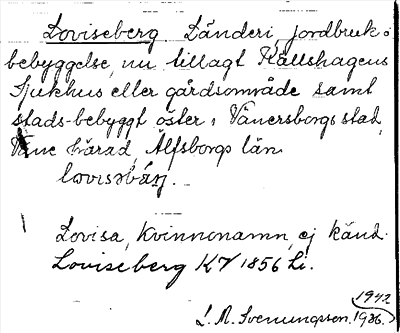 Loviseberg. Länderi, jordbruk o
bebyggelse, nu tillagt Källshagens
Sjukhus, eller gårdsområde samt
stads-bebyggt öster i Vänersborgs stad,
Väne härad, Älfsborgs län.
Lovisa, kvinnonamn, ej känd.
Loviseberg K7 1856 Li.
1942
L. M. Svenungsson. 1936.